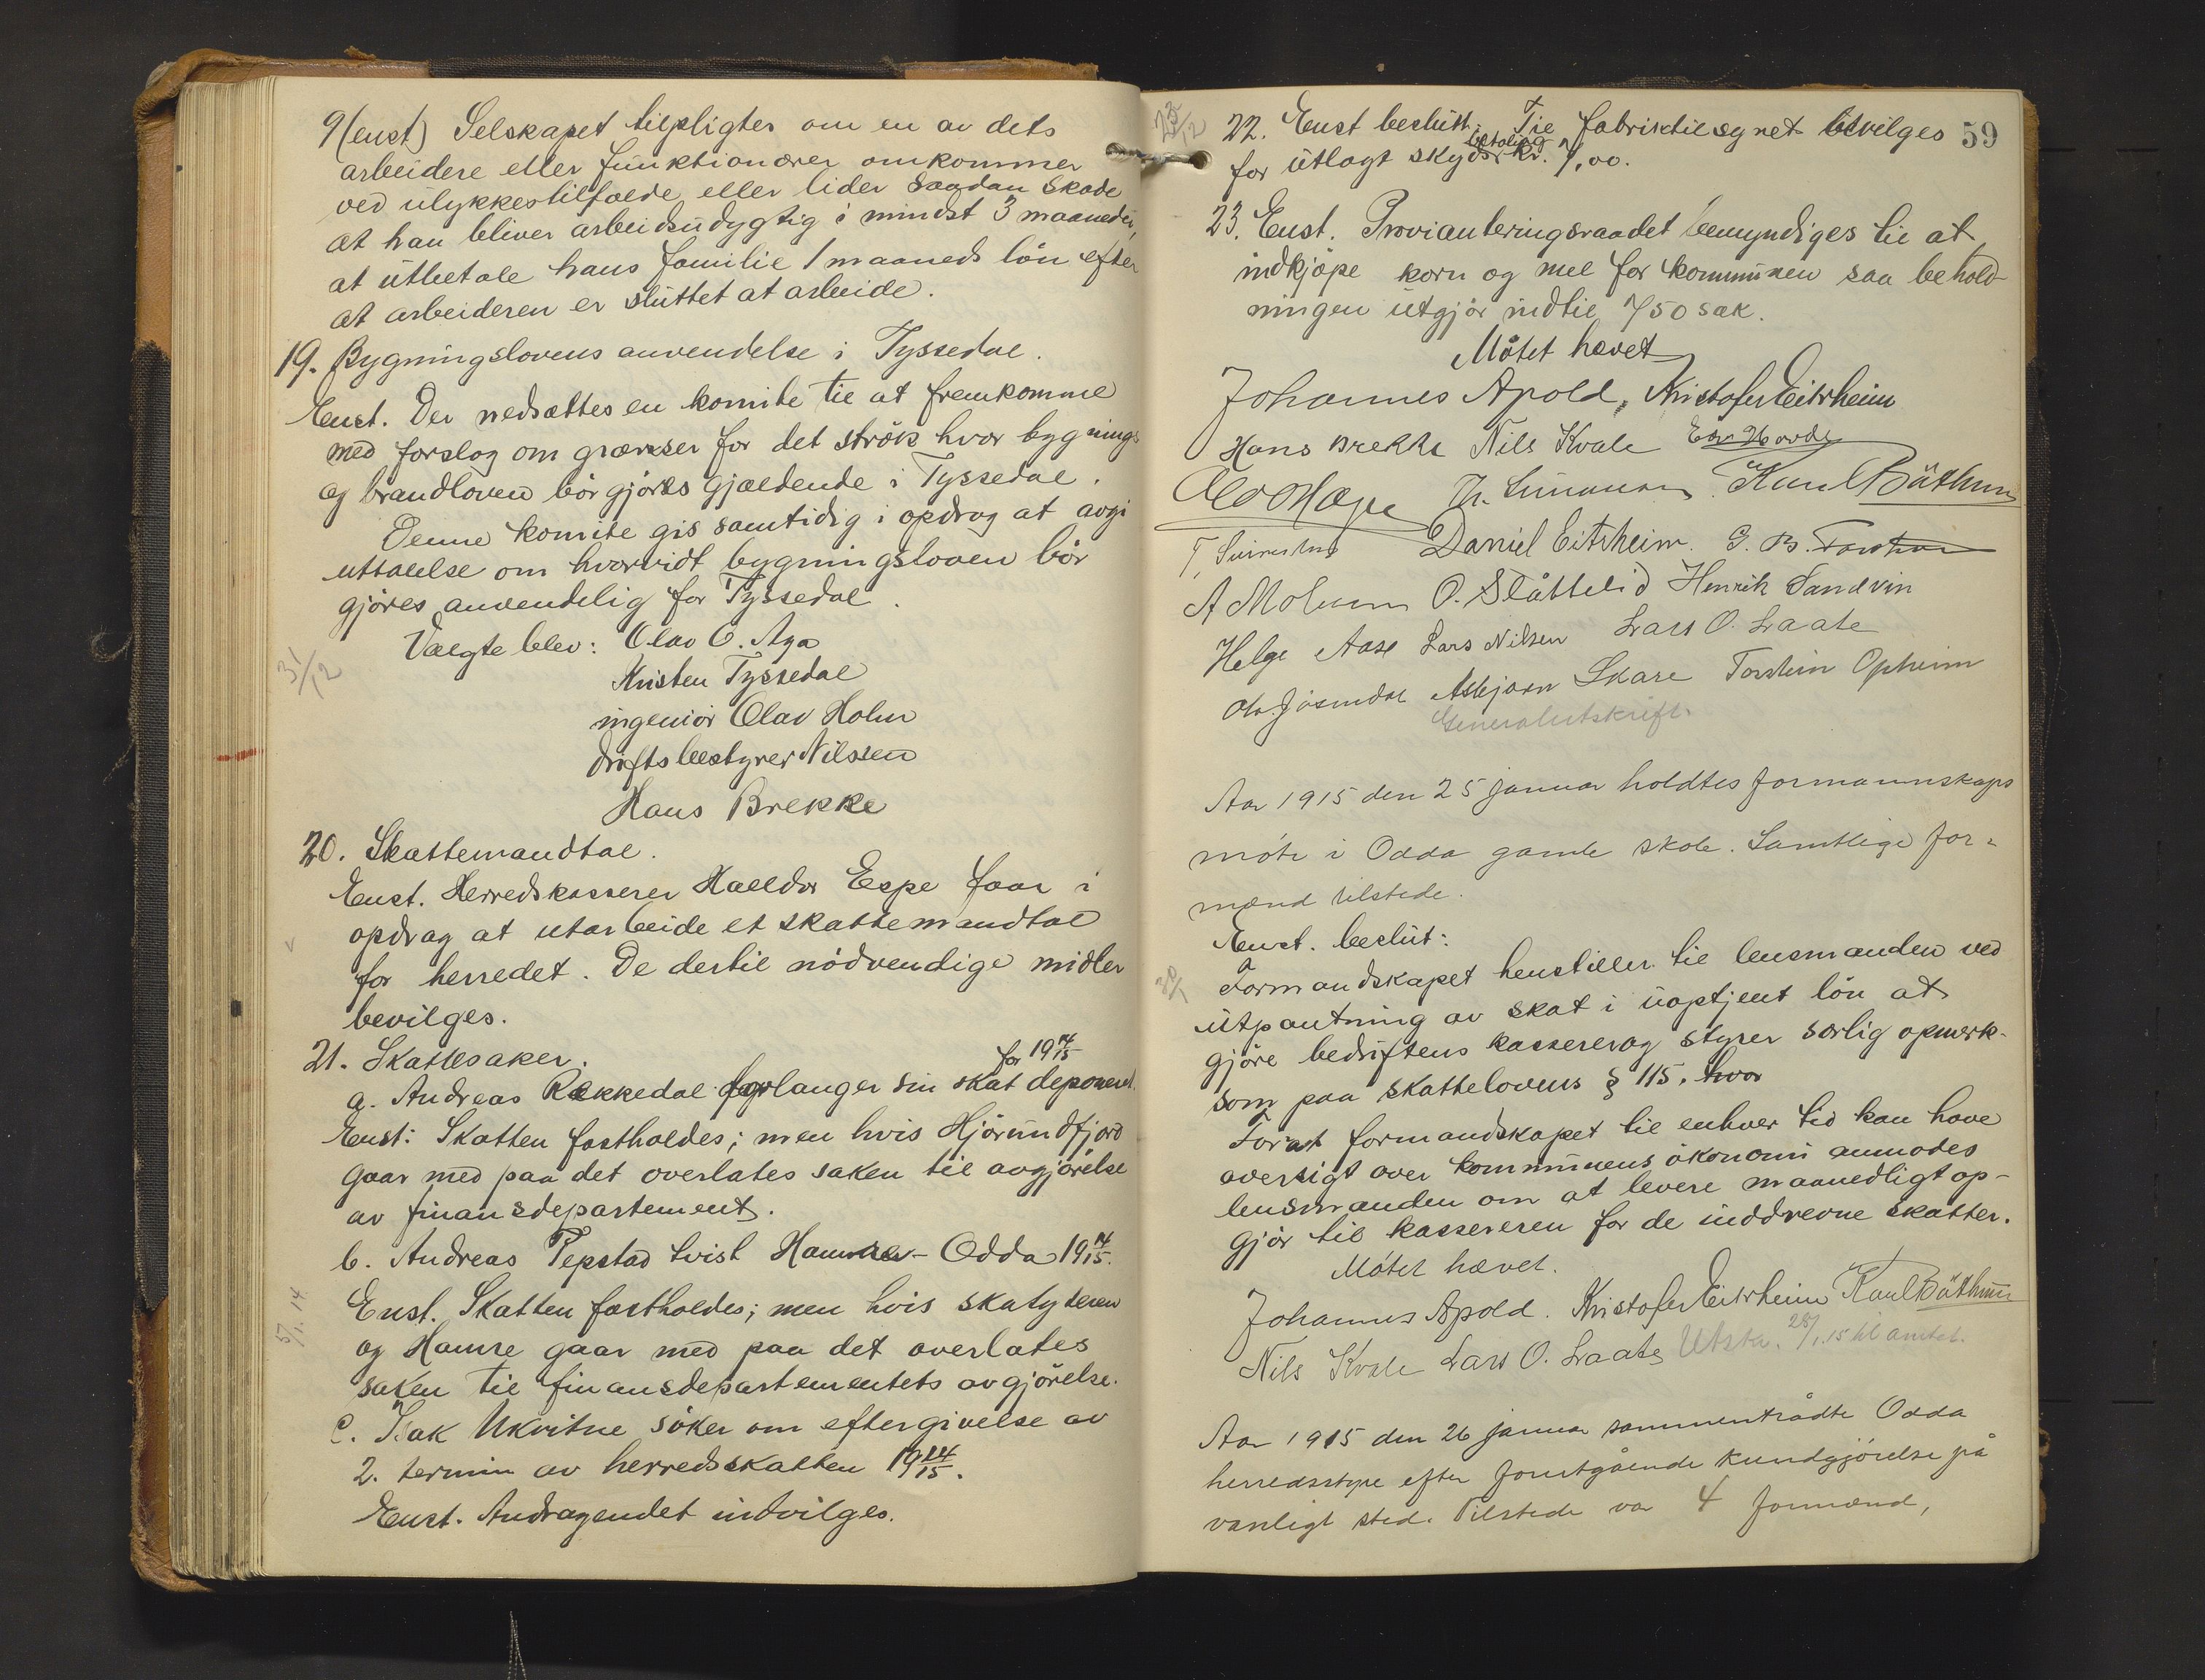 9 (enst) Selskapet tilpligtes om en av dets
arbeidere eller funktionærer omkommer
ved ulykkestilfælde eller lider saadan skade
at han bliver arbeidsudygtig i mindst 3 maaneder,
at utbetale hans familie 1 maaneds lön efter
at arbeideren er sluttet at arbeide.
19. Bygningslovens anvendelse i Tyssedal.
Enst. Der nedsættes en komite til at fremkomme
med forslag om grænser for det strök hvor bygnings
og brandloven bör gjöres gjældende i Tyssedal.
Denne komite gis samtidig i opdrag at avgi
uttalelse om hvorvidt bygningsloven bör
gjöres anvendelig for Tyssedal.
Valgte blev: Olav O. Aga
31/12
Kristen Tyssedal
ingeniör Olav Holm
driftsbestyrer Nilssen
Hans Brekke
20. Skattemandtal.
Enst. Herredskasserer Halldor Espe faar i
opdrag at utarbeide et skattemandtal
for herredet. De dertil nödvendige midler
bevilges.
21. Skattesaker.
a. Andreas Rekkedal forlanger sin skat for 1914/15 deponeret.
Enst: Skatten fastholdes; men hvis Hjörundfjord
gaar med paa det overlates saken til avgjörelse
av finansdepartement.
b. Andreas Tepstad tvist Hamre - Odda 1914/15.
5/1. 14
Enst. Skatten fastholdes; men hvis skatyderen
og Hamre gaar med paa det overlates
saken til finansdepartementets avgjörelse.
c. Isak Ukvitne söker om eftergivelse av
2. termin av herredsskatten 1914/15.
Enst. Andragendet indvilges.
59
23/12
22. Enst beslutt: Til fabriktilsynet bevilges
for utlagt skyds betaling kr. 7,00.
23. Enst. Provianteringsraadet bemyndiges til at
indkjöpe korn og mel for kommunen saa behold-
ningen utgjör indtil 750 sæk.
Mötet hævet
Johannes Apold, Kristofer Eitrheim
Hans Brekke Nils Kvale
Olav O Aga Th. Simonsen Karl Bäthun
Daniel Eitrheim. G. B.
A Molum O. Slåttelid Henrik Sandvin
Helge Aase Lars Nilsen Lars O. Laate
Asbjørn Skare Torstein Opheim
Generalutskrift.
Aar 1915 den 25 januar holdtes formannskaps
möte i Odda gamle skole. Samtlige for-
mænd tilstede.
Enst. beslut:
Formandskapet henstiller til lensmanden ved
utpantning av skat i uoptjent lön at
gjöre bedriftens kasserer og styrer særlig opmerk-
som paa skattelovens § 115. hvor
Forat formandskapet til enhver tid kan have
oversigt over kommunens ökonomi anmodes
lensmanden om at levere maanedligt op-
gjör til kassereren for de inddrevne skatter.
Mötet hævet.
Johannes Apold. Kristofer Eitrheim Karl Bäthun
Nils Kvale Lars O. Laate Utskr. 28/1.15 til amtet.
Aar 1915 den 26 januar sammentrådte Odda
herredsstyre efter forutgående kundgjörelse på
vanligt sted. Tilstede var 4 formænd,